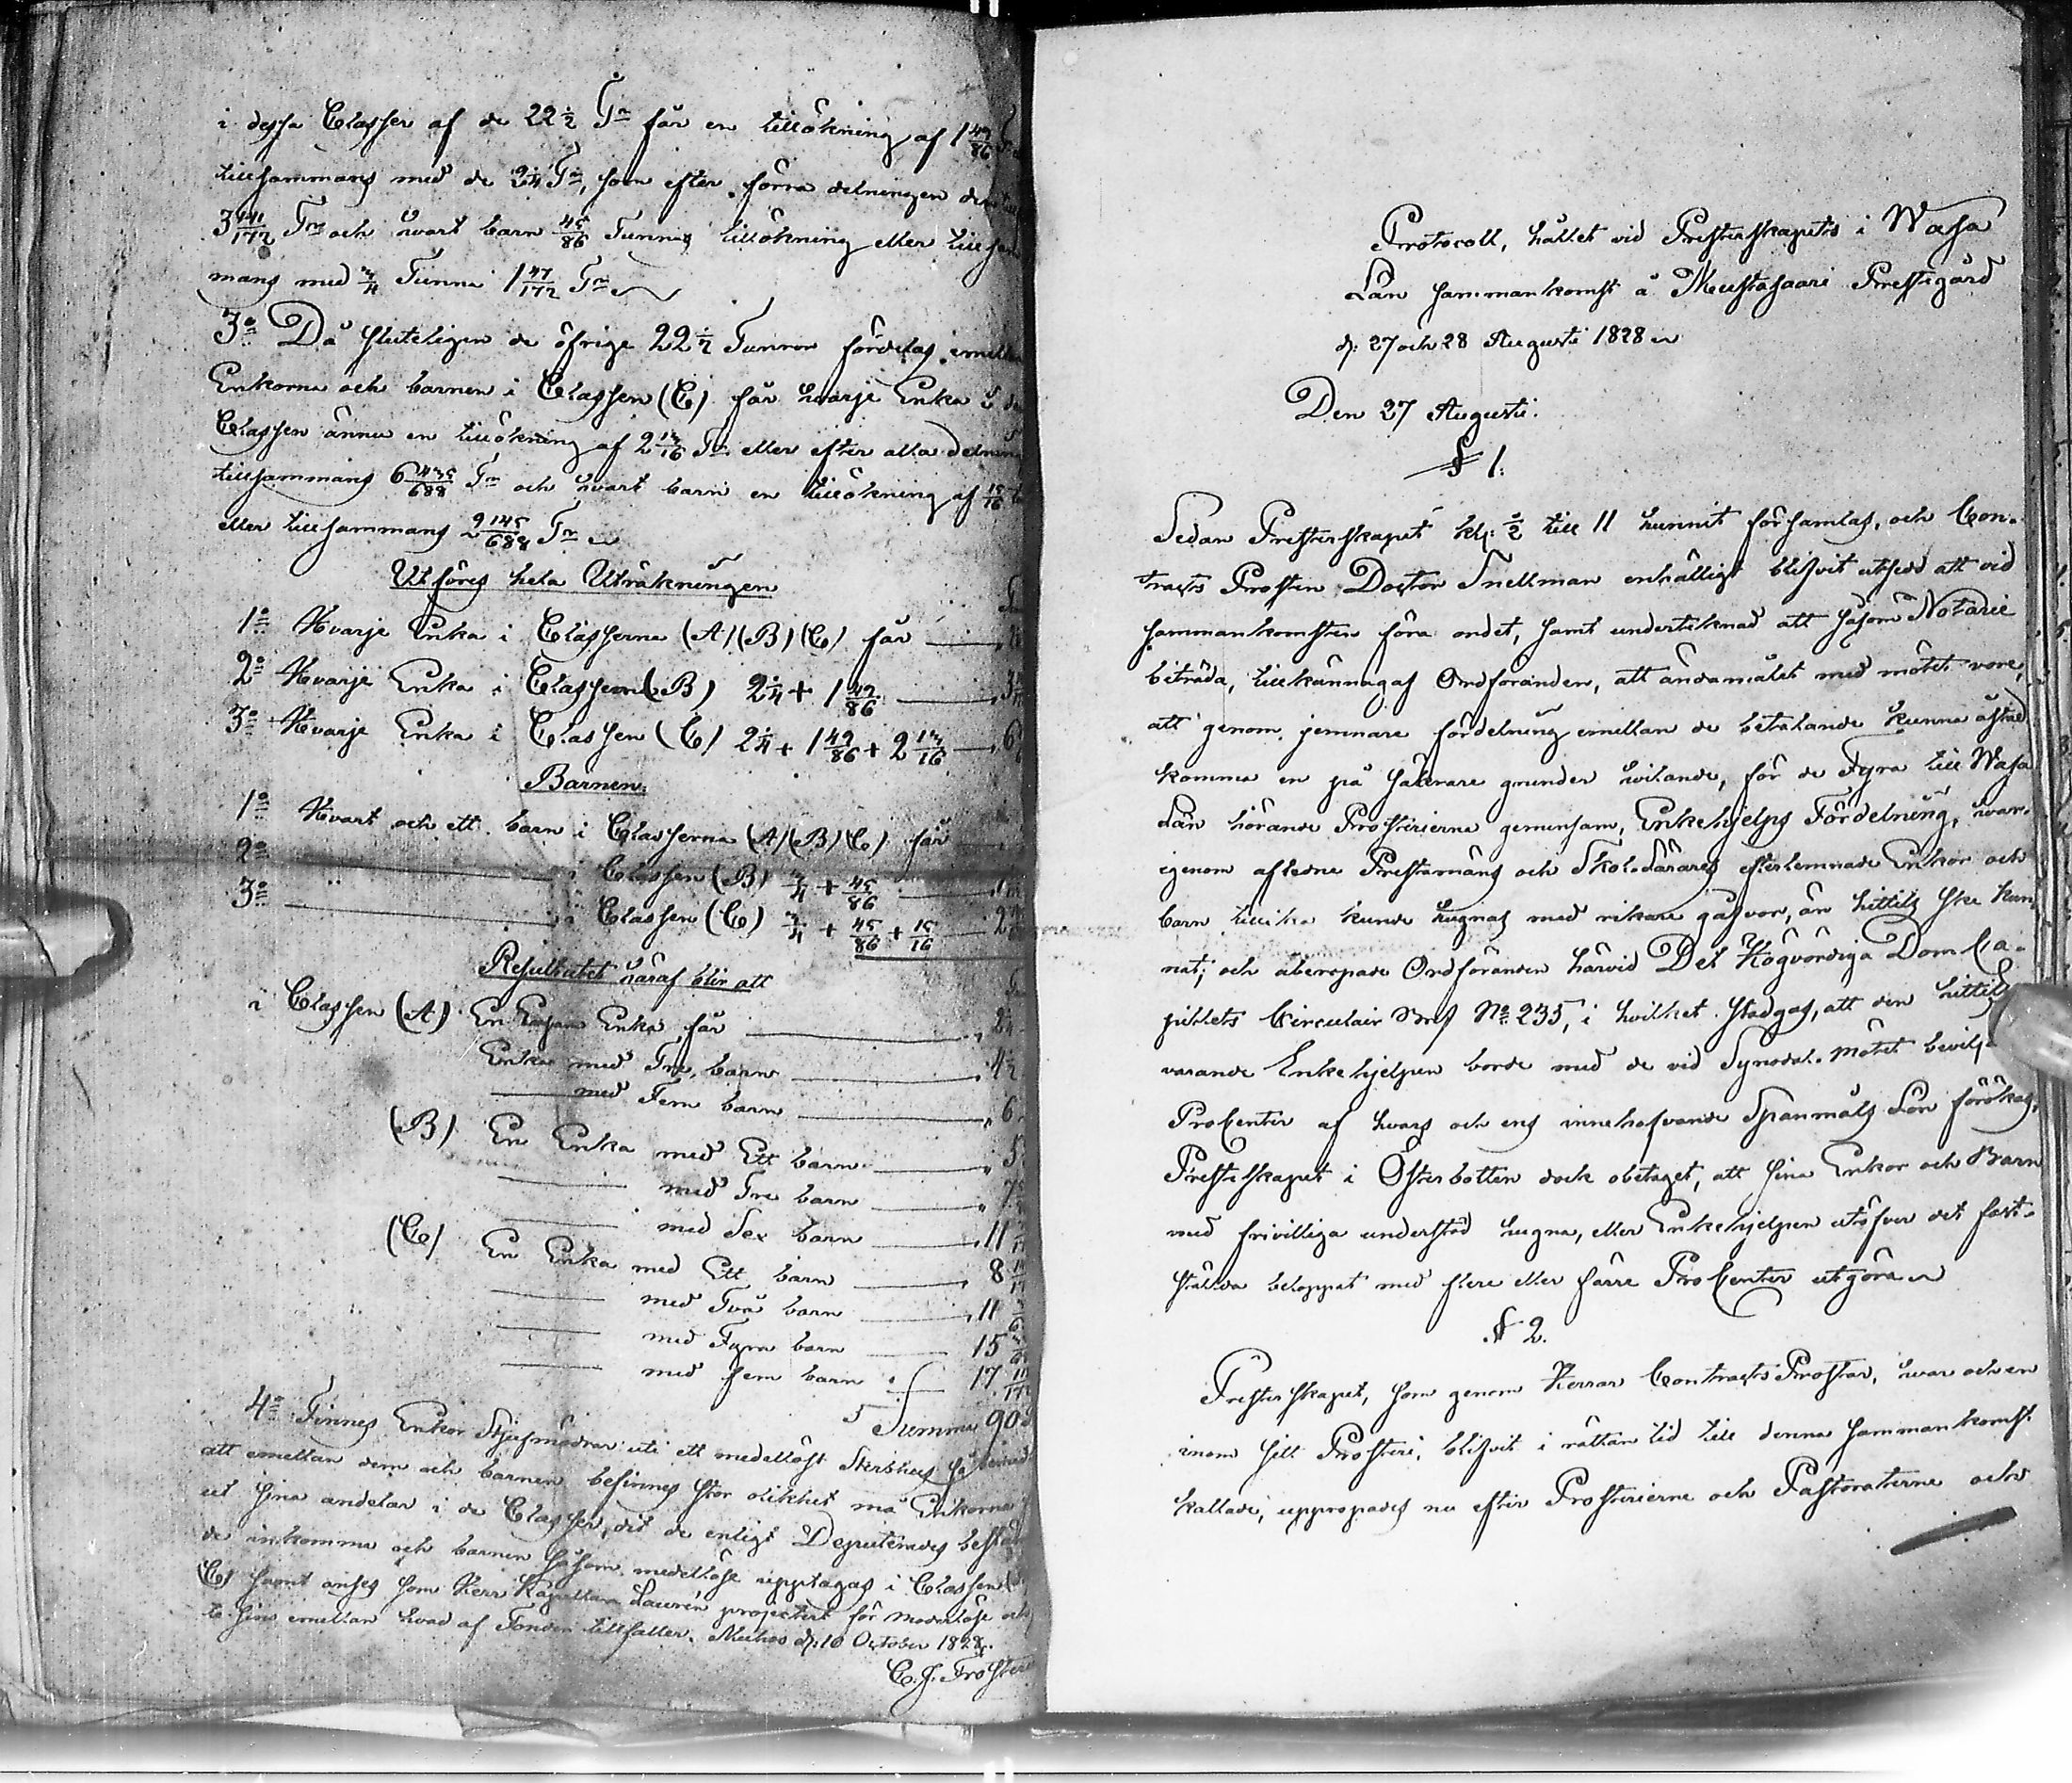 i dessa Classer af de 22 1/2 Tr får en tillökning af 1 49/86
tillsammans med de 2 1/4 Tr, som efter förra delningen
3 141/172 Tr och hvart barn 45/86 Tunnas tillökning eller tillsam
mans med 3/4 Tunna 1 47/172 Tr
3o Då sluteligen de öfrige 22 1/2 Tunnor fördelas emellan
Enkorna och barnen i Classen (C) får hvarje Enka i
Classen ännu en tillökning af 2 13/16 Tr eller efter alla delnin
tillsammans 6 435/688 Tr och hvart barn en tillökning af 15/16
eller tillsammans 2 145/688 Tr
Utföres hela Uträkningen
1o Hvarje Enka i Classerna (A) (B) (C) får
2o Hvarje Enka i Classern (B) 2 1/4 + 1 49/86 3
3o Hvarje Enka i Classen (C) 2 1/4 + 1 49/86 + 2 13/16 6
Barnen
1o Hvart och ett barn i Classerna (A) (B) (C) får
2o " i Classen (B) 3/4 + 45/86
3o i Classen (C) 3/4 + 45/86 + 15/16 2
Resultatet häraf blir att
i Classen (A) En Ensam Enka får 2 1/4
Enka med Tre barn 4 1/2
med Fem barn 6
(B) En Enka med Ett barn 5
med Tre barn 7
med Sex barn 11
(C) En Enka med Ett barn 8
med Två barn 11
med Fyra barn 15
med fem barn 17
Summa 90
4o Finnes Enkor Stjufmödrar uti ett medellöst Sterbhus
att emellan dem och barnen befinnes stor olikhet må Enkorna
ut sina andelar i de Classer, dit de enligt Deputerades
de inkomma och barnen såsom medellöse upptagas i Classen
(C) samt anses som Herr Kapellan Laurén projectert för moderlöse och
te sins emellan hvad af Fonden tillfaller. Muhos d: 10 October 1828.
C. J. Froster
Protocoll, hållet vid Presterskapets i Wasa
Län sammankomst å Mustasaari Prestgård
d: 27 och 28 Augusti 1828
Den 27 Augusti.
§ 1.
Sedan Presterskapet kl: 1/2 till 11 hunnit församlas, och Con-
tracts Prosten Doctor Snellman enhälligt blifvit utsedd att vid
sammankomsten föra ordet, samt undertecknad att såsom Notarie
biträda, tillkännagaf Ordföranden, att ändamålet med mötet vore,
att genom jemnare fördelning emellan de betalande kunna åstad
komma en på säkrare grunder hvilande, för de Fyra till Wasa
Län hörande Prosterierna gemensam, Enkehjelps Fördelning, hvar-
igenom aflidne Prestamäns och Skol-Lärares efterlemnade Enkor och
barn tillika kunde hugnas med rikare gåfvor, än hittils ske kun
nat; och åberopade Ordföranden härvid Det Högvördiga DomCa-
pitlets Circulair Bref No 235, i hvilket stadgas, att den hittils
varande Enkehjelpen borde med de vid Synodal-Mötet bevilj
ProCenter af hvars och ens innehafvande Spanmåls Lön förökas,
Presterskapet i Österbotten dock obetaget, att sina Enkor och Barn
med frivilliga understöd hugna, eller Enkehjelpen utöfver det fast-
stälda beloppet med flere eller färre ProCenter utgöra
§ 2.
Presterskapet, som genom Herrar Contracts Prostar, hvar och en
inom sitt Prosteri, blifvit i rättan tid till denna sammankomst
kallade, uppropades nu efter Prosterierne och Pastoraterne och